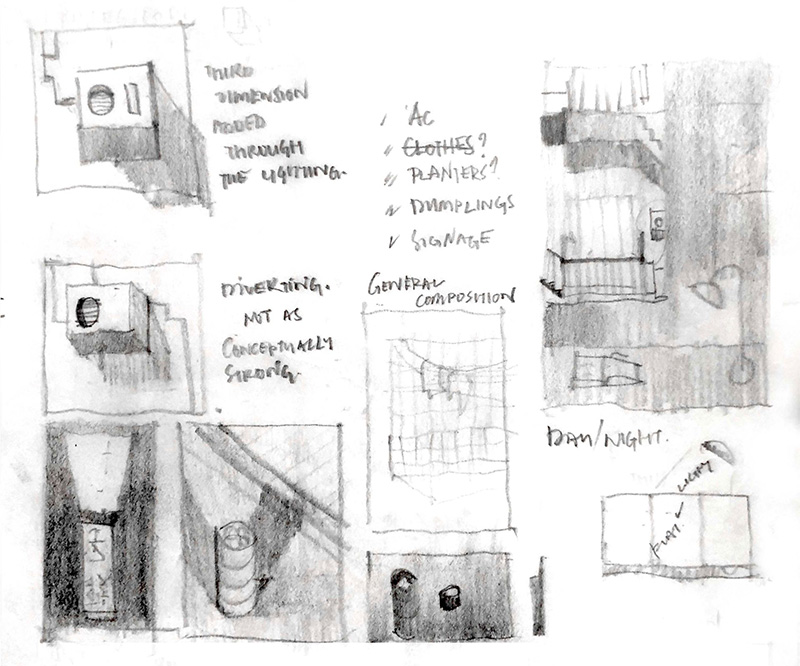 THIRD
DIMENSION
ADDED
THROUGH
THE LIGHTING.
AC
CLOTHES?
PLANTERS?
DUMPLINGS
SIGNAGE
DIVERTING.
NOT AS
CONCEPTUALLY
STRONG.
GENERAL
COMPOSITION
DAY/NIGHT.
LIGHT
FLAT.